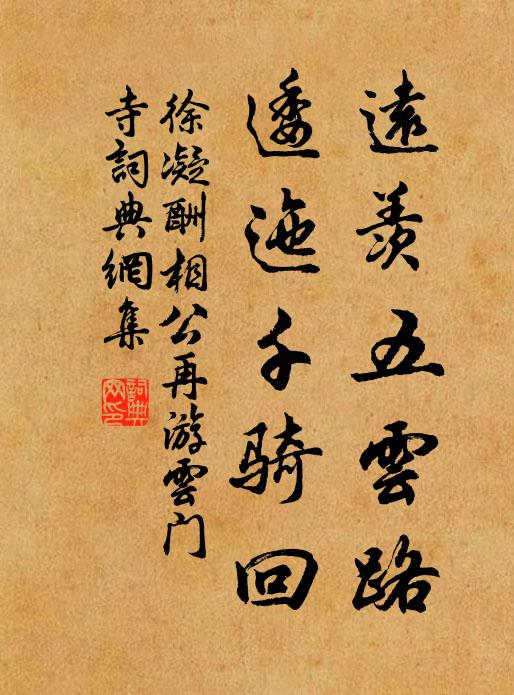 遠羨五雲路
逶迤千騎回
徐凝酬相公再游雲门
寺詞典網集
詞典
网印